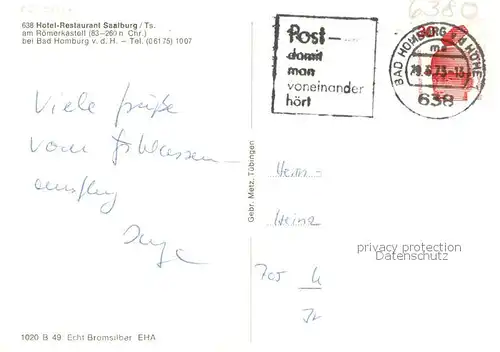 6380
638 Hotel-Restaurant Saalburg / Ts.
am Römerkastell (83–260 n Chr.)
bei Bad Homburg v. d. H. – Tel. (06175) 1007
Post-
damit
man
voneinander
hört
BAD HOMBURG v d HÖHE 1
ma
638
Viele Grüße
vom
ausflug
Gebr. Metz, Tübingen
Herrn
Heinz
705
privacy protection
Datenschutz
1020 B 49 Echt Bromsilber EHA